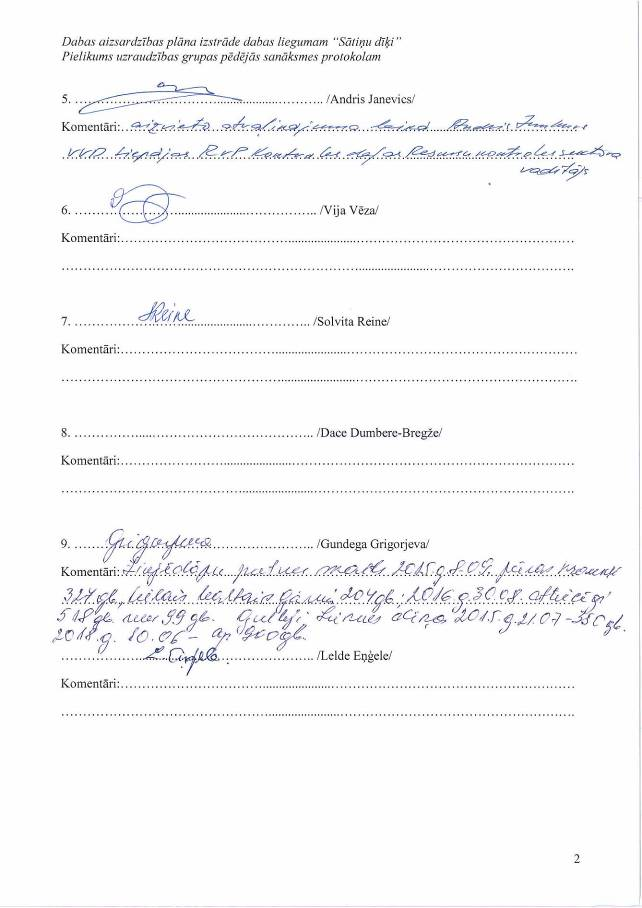 Dabas aizsardzības plāna izstrāde dabas liegumam “Sātiņu dīķi”
Pielikums uzraudzības grupas pēdējās sanāksmes protokolam
5. ……………………………………….. /Andris Janevics/
Komentāri: aizvieto atvaļinājuma laikā
VVD Liepājas RVP Kontroles daļas Resursu kontroles sektora
vadītājs
6. ……………………………………….. /Vija Vēza/
Komentāri:……………………………………………………
……………………………………………………………….
7. Reine /Solvita Reine/
Komentāri:……………………………………………………
……………………………………………………………….
8. ……………………………………….. /Dace Dumbere-Bregže/
Komentāri:……………………………………………………
……………………………………………………………….
9. Grigorjeva /Gundega Grigorjeva/
Komentāri: 2015.g. 8.09.
327 gb., lielais 204 gb; 2016.g. 30.08. attiecīgi
518 gb 99 gb. 2015.g. 21.07
2018.g. 10.06 – ap 900 gb.
/Lelde Eņģele/
Komentāri:……………………………………………………
……………………………………………………………….
2